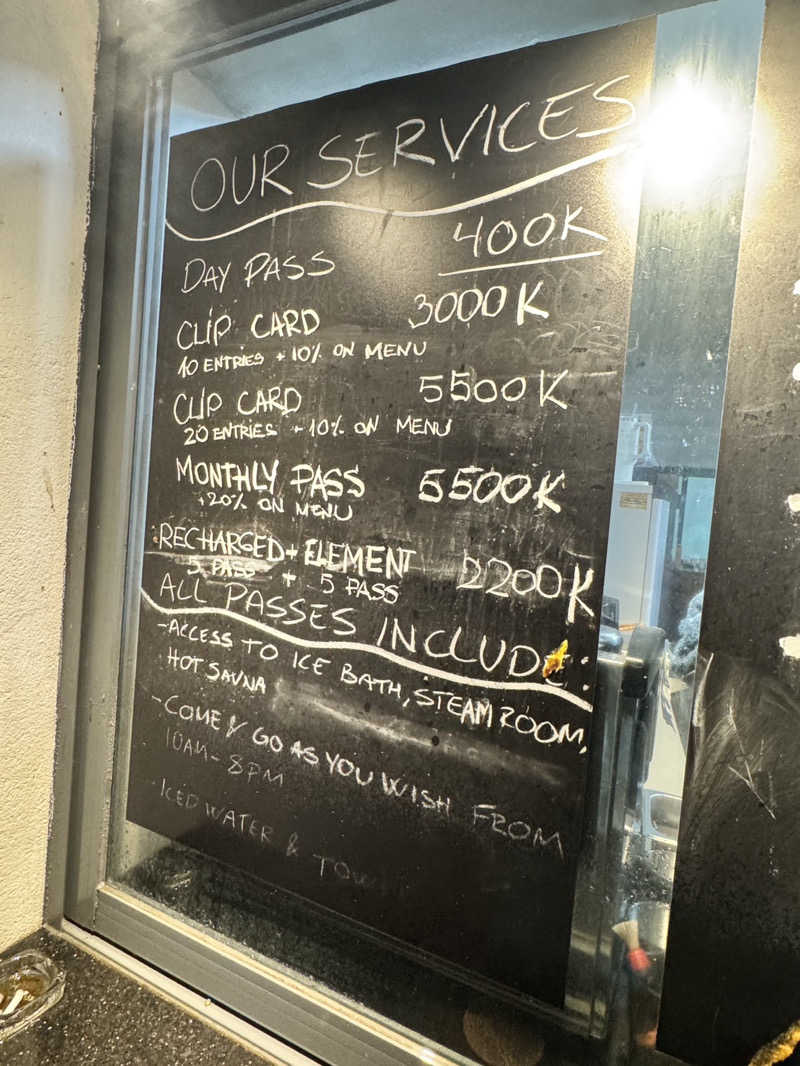 OUR SERVICES
DAY PASS 400K
CLIP CARD 3000K
10 ENTRIES + 10% ON MENU
CLIP CARD 5500K
20 ENTRIES + 10% ON MENU
MONTHLY PASS 5500K
+20% ON MENU
RECHARGED + ELEMENT 2200K
5 PASS + 5 PASS
ALL PASSES INCLUDE:
- ACCESS TO ICE BATH, STEAM ROOM,
HOT SAUNA
- COME & GO AS YOU WISH FROM
10AM - 8PM
- ICED WATER &